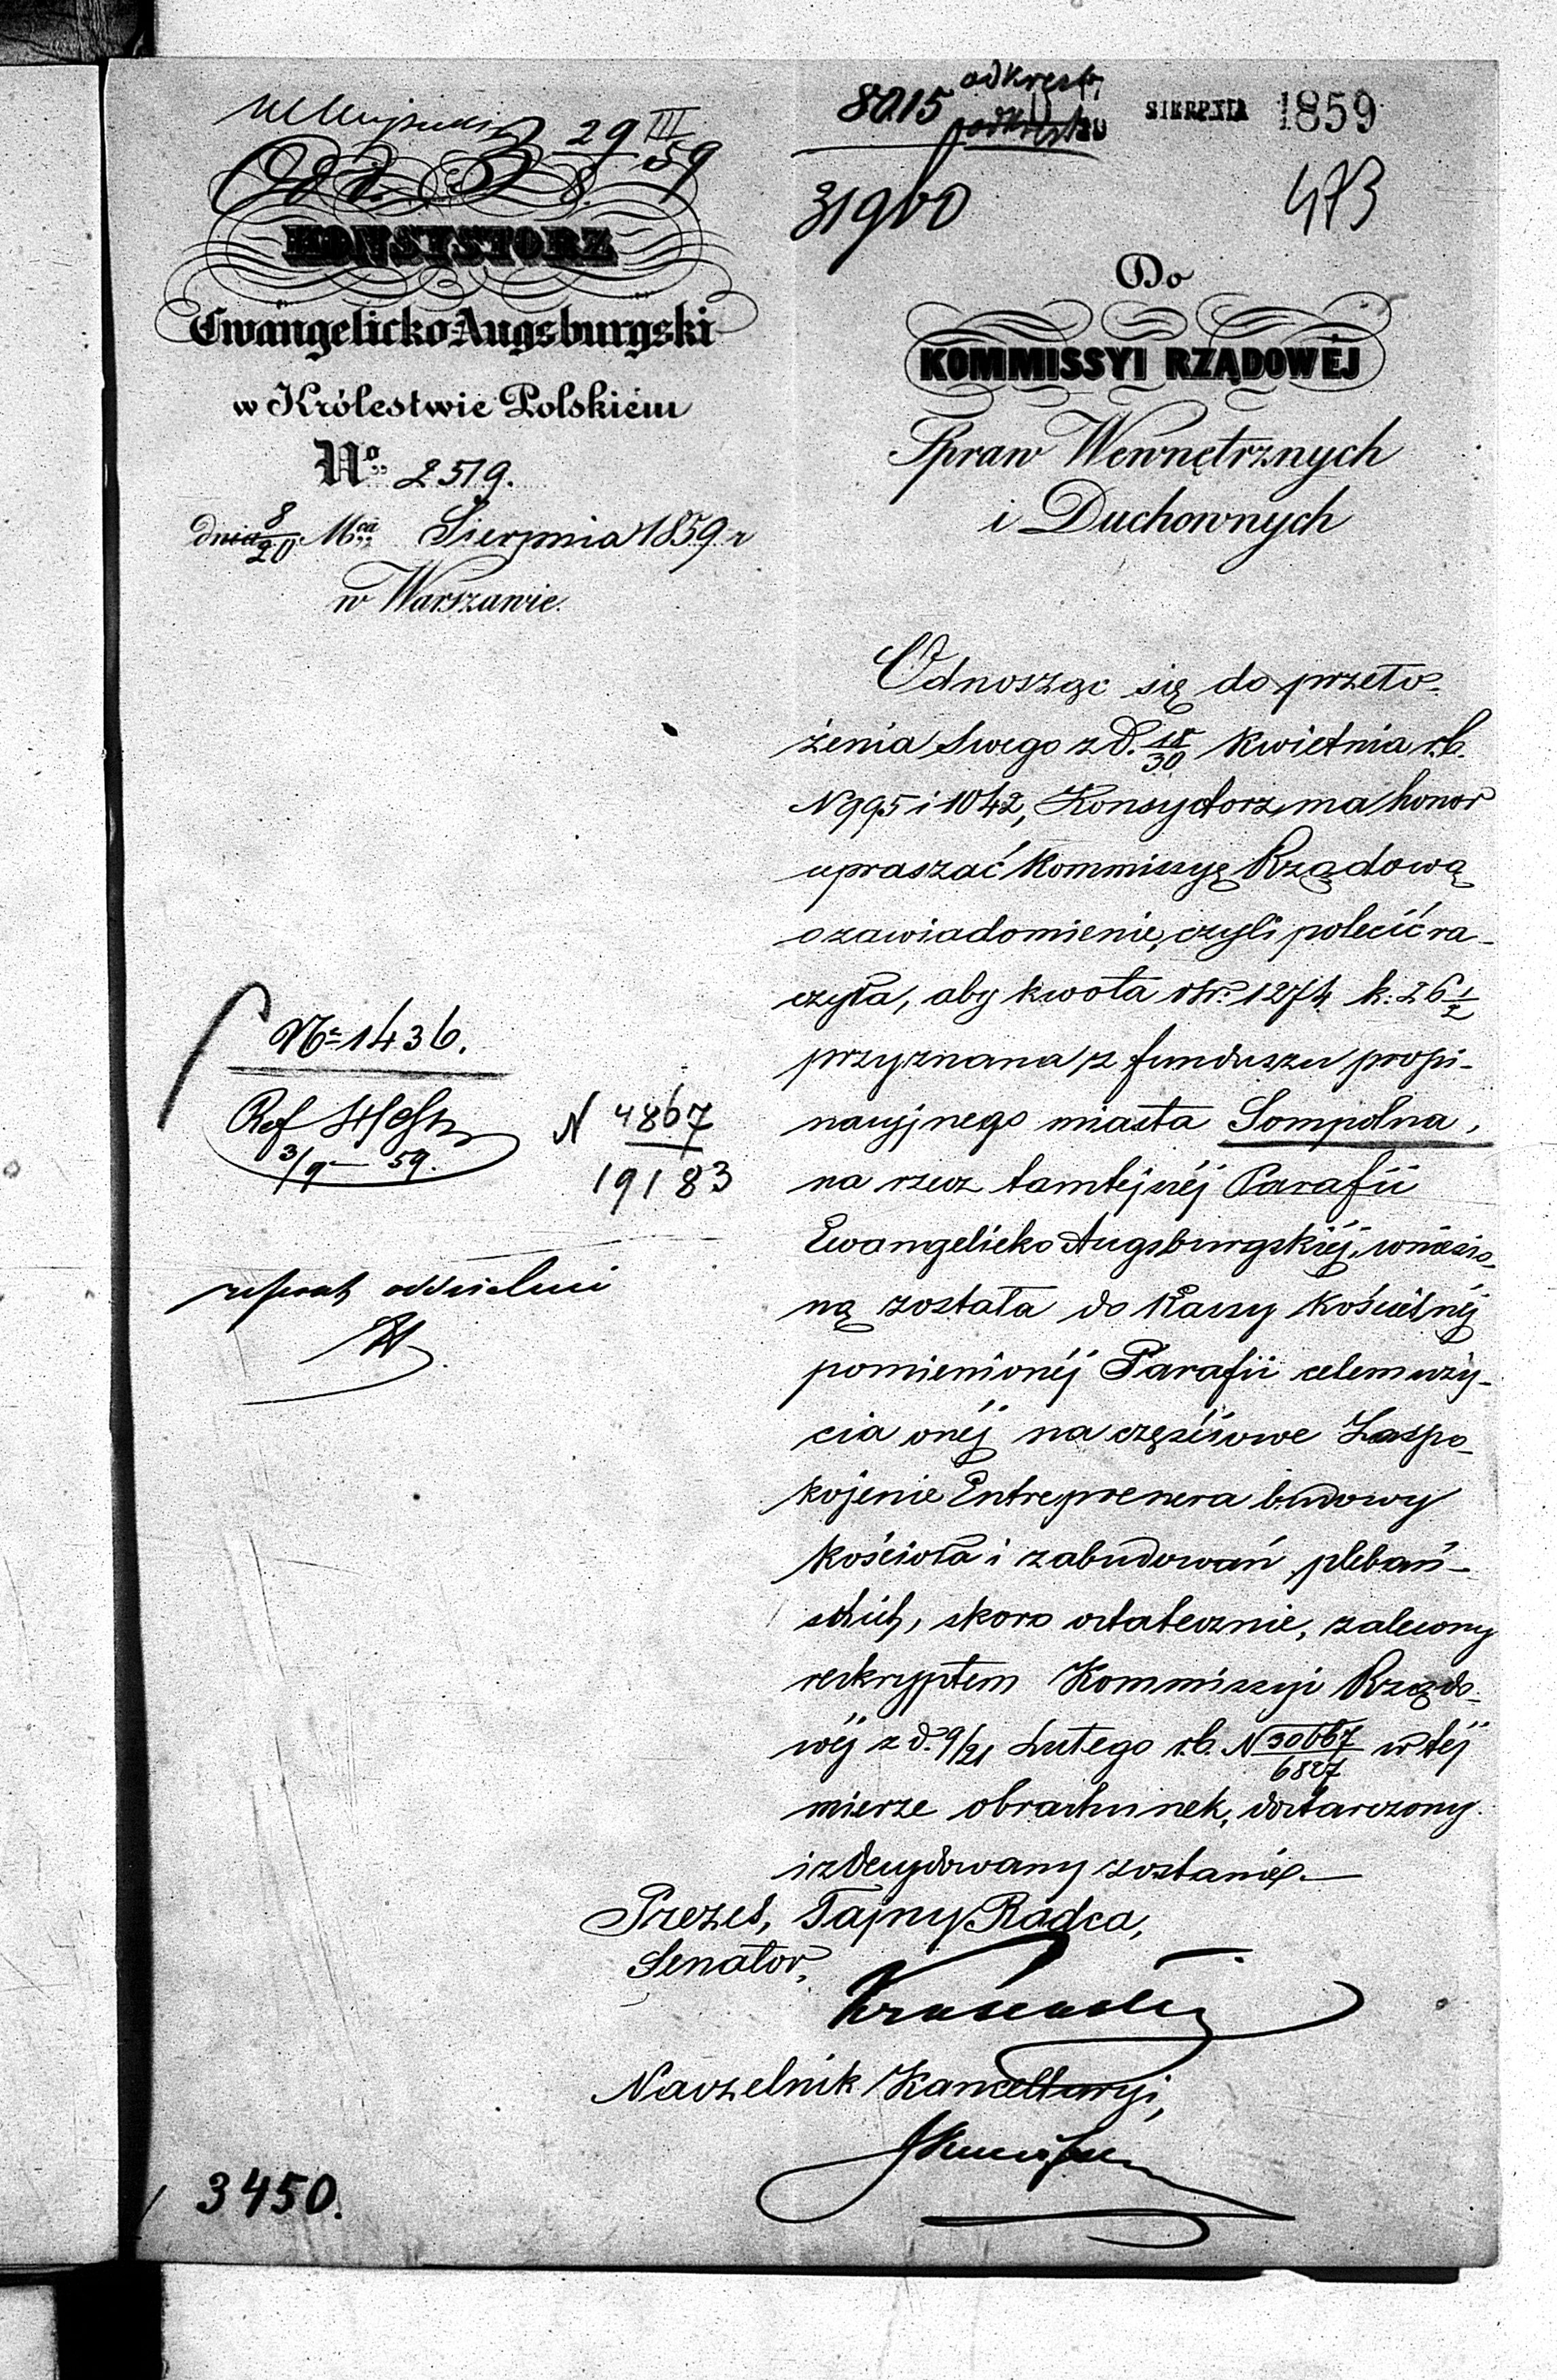 29 III
8. 59
KONSYSTORZ
Ewangelicko-Augsburgski
w Królestwie Polskiém
No 2519.
dnia 8/20 Mca Sierpnia 1859 r
w Warszawie.
8015
SIERPNIA 1859
31960
473
Do
KOMMISSYI RZĄDOWÉJ
Spraw Wewnętrznych
i Duchownych
Odnosząc się do przeło-
żenia swego z d. 18/30 Kwietnia r.b.
N 995 i 1042, Konsystorz ma honor
upraszać Kommissyę Rządową
o zawiadomienie, czyli polecić ra-
czyła, aby kwota rsr. 1274 k. 26 1/2
przyznana z funduszu propi-
nacyjnego miasta Sompolna,
na rzecz tamtejszéj Parafii
Ewangelicko Augsburgskiéj, wniesio-
ną została do Kassy Kościelnéj
pomienionéj Parafii celem uży-
cia onéj na częściowe Zaspo-
kojenie Entreprenera budowy
kościoła i zabudowań plebań-
skich, skoro ostatecznie, zalecony
reskryptem Kommissyi Rządo-
wéj z d. 9/21 Lutego r.b. N 30667/6827 w téj
mierze obrachunek, dostarczony
i zdecydowany zostanie.—
Prezes, Tajny Radca,
Senator,
Naczelnik Kancellaryi,
Nr 1436.
Ref
3/9 59.
N 4867
19183
referat oddzielni
3450.